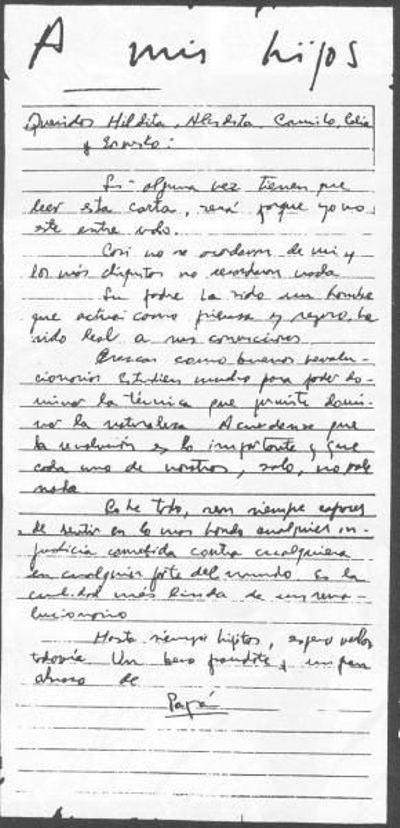 A mis hijos
Queridos Hildita, Aleidita, Camilo, Celia
y Ernesto:
Si alguna vez tienen que
leer esta carta, será porque yo no
esté entre Uds.
Casi no se acordaran de mi y
los más chiquitos no recordaran nada
Su padre ha sido un hombre
que actúa como piensa y, seguro, ha
sido leal a sus convicciones
Crezcan como buenos revolu-
cionarios. Estudien mucho para poder do-
minar la técnica que permite domi-
nar la naturaleza. Acuerdense que
la revolución es lo importante y que
cada uno de nosotros, solo, no vale
nada
Sobre todo, sean siempre capaces
de sentir en lo mas hondo cualquier in-
justicia cometida contra cualquiera
en cualquier parte del mundo. Es la
cualidad más linda de un revo-
lucionario
Hasta siempre hijitos, espero verlos
todavía. Un beso grandote y un gran
abrazo de
Papá